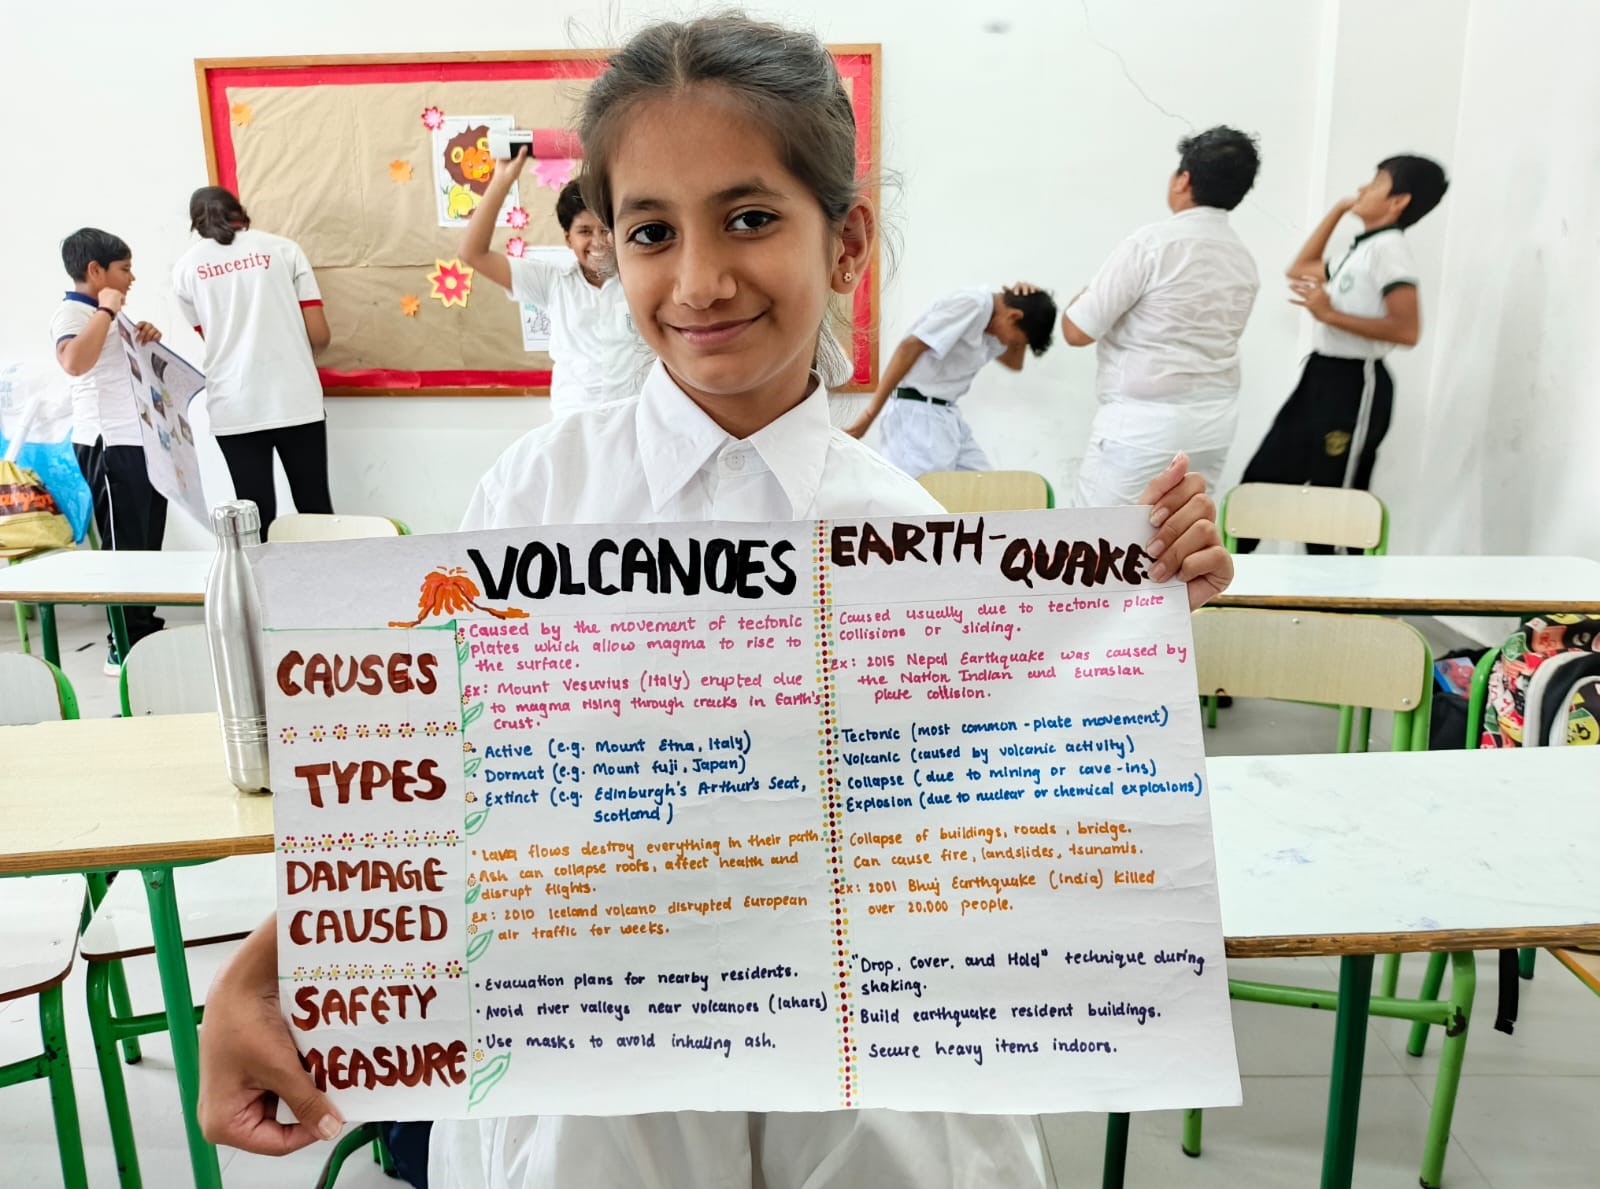 Sincerity
VOLCANOES
EARTH-
QUAKE
CAUSES
• Caused by the movement of tectonic
plates which allow magma to rise to
the surface.
Ex: Mount Vesuvius (Italy) erupted due
to magma rising through cracks in Earth's
crust.
Caused usually due to tectonic plate
collisions or sliding.
Ex: 2015 Nepal Earthquake was caused by
the Nation Indian and Eurasian
plate collision.
TYPES
• Active (e.g. Mount Etna, Italy)
• Dormat (e.g. Mount fuji, Japan)
• Extinct (e.g. Edinburgh's Arthur's Seat,
Scotland)
Tectonic (most common - plate movement)
• Volcanic (caused by volcanic activity)
• Collapse (due to mining or cave-ins)
• Explosion (due to nuclear or chemical explosions)
DAMAGE
CAUSED
• Lava flows destroy everything in their path.
• Ash can collapse roofs, affect health and
disrupt flights.
Ex: 2010 Iceland volcano disrupted European
air traffic for weeks.
Collapse of buildings, roads, bridge.
Can cause fire, landslides, tsunamis.
Ex: 2001 Bhuj Earthquake (India) killed
over 20,000 people.
SAFETY
MEASURE
• Evacuation plans for nearby residents.
• Avoid river valleys near volcanoes (lahars)
• Use masks to avoid inhaling ash.
"Drop, Cover, and Hold" technique during
shaking.
Build earthquake resident buildings.
Secure heavy items indoors.